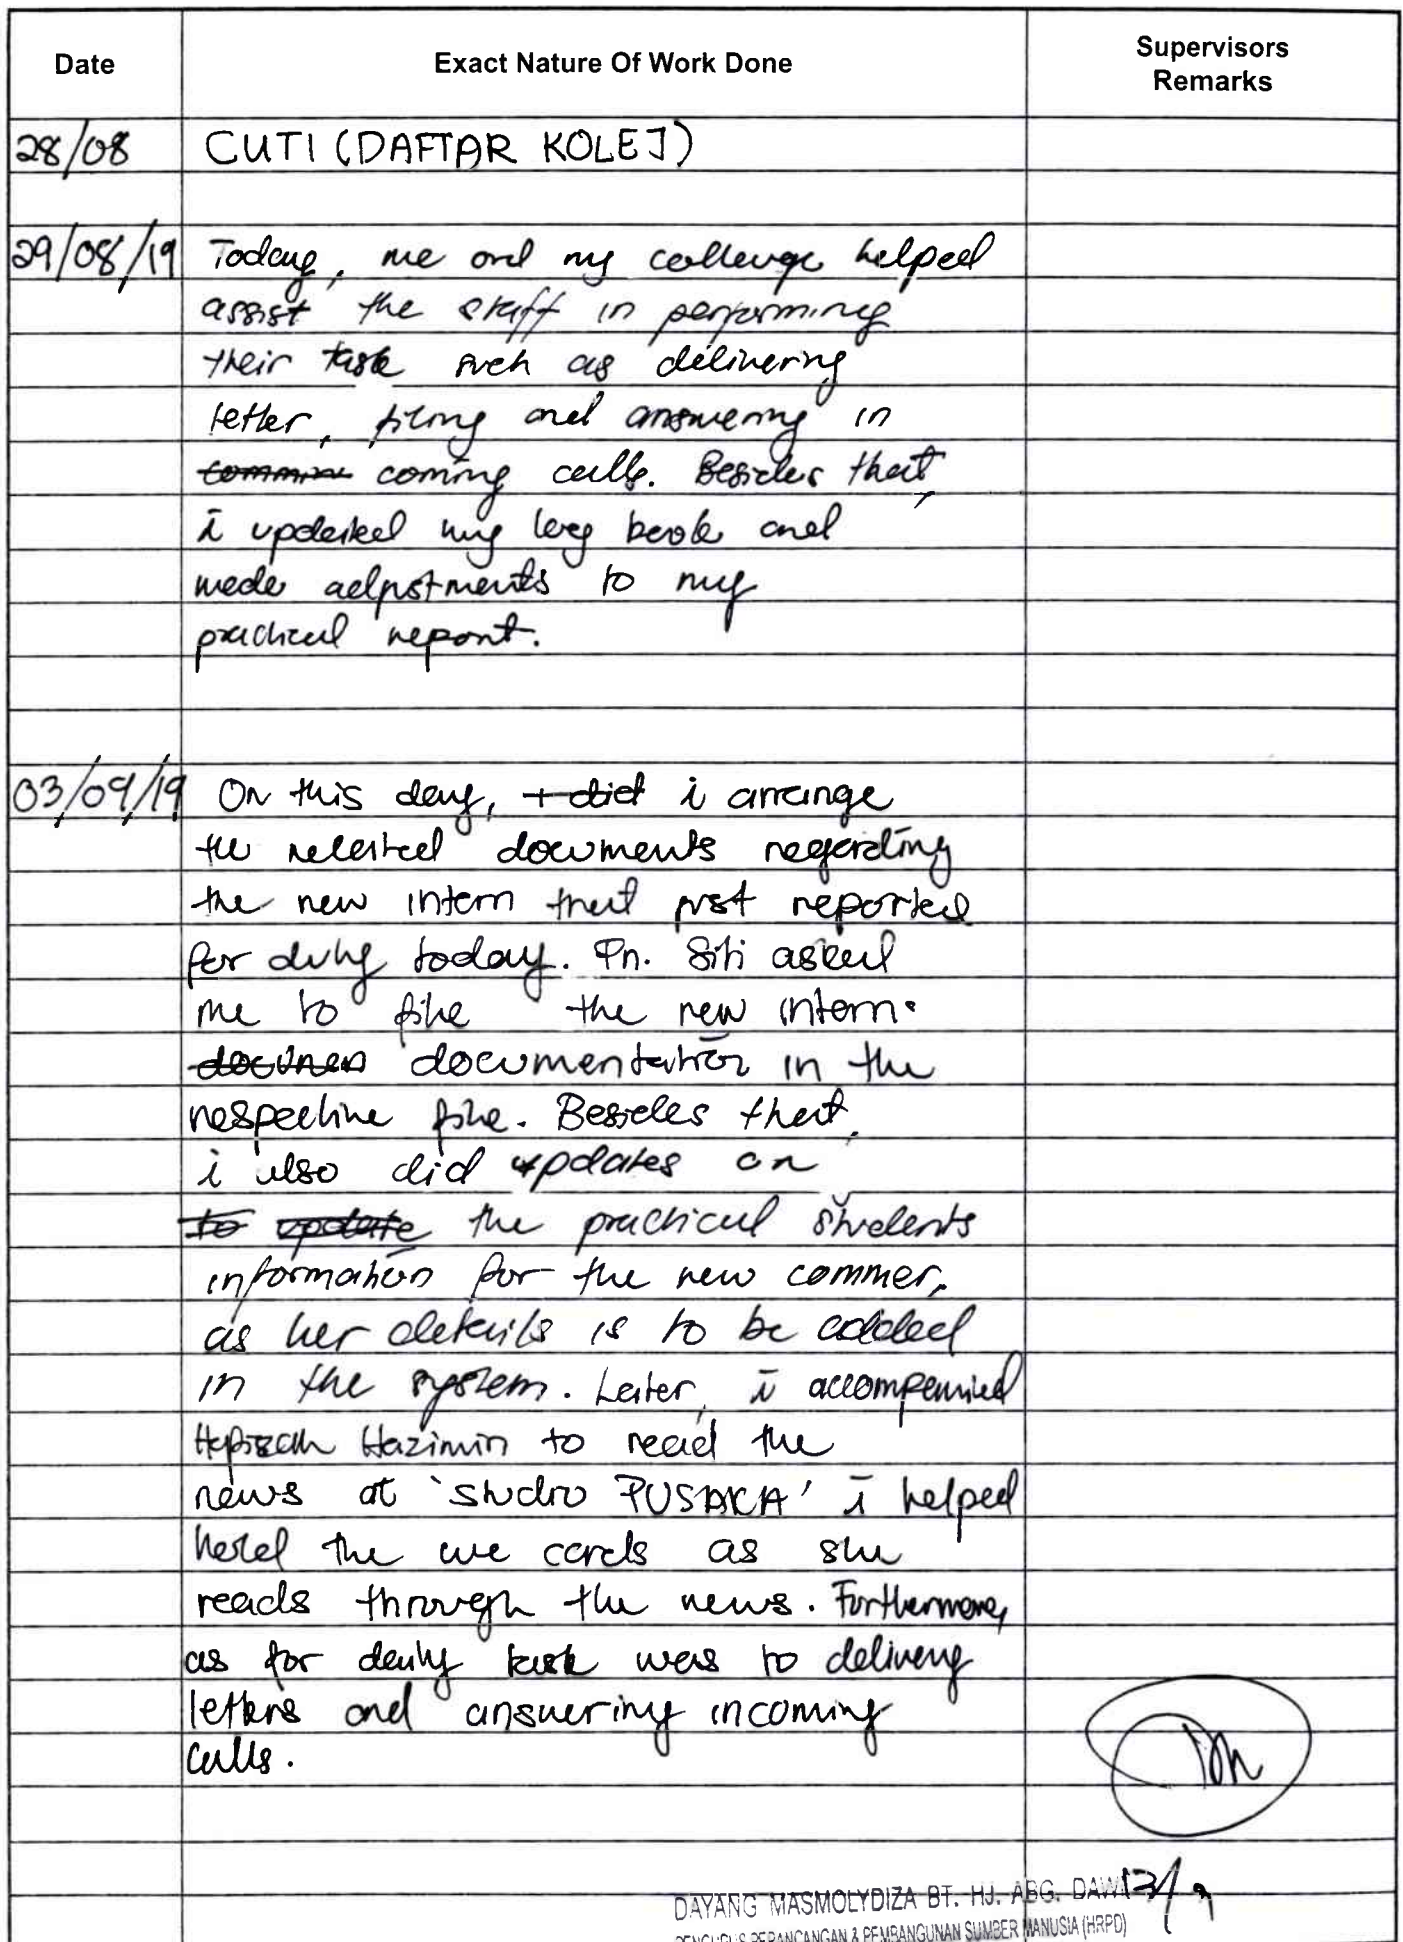 Date Exact Nature Of Work Done Supervisors Remarks
28/08 CUTI (DAFTAR KOLEJ)
29/08/19 Today, me and my colleuge helped
assist the staff in performing
their task such as delivering
letter, filing and answering in
coming calls. Besides that,
i updated my log book and
made adjustments to my
practical report.
03/09/19 On this day, I did i arrange
the related documents regarding
the new intern that just reported
for duty today. Pn. Siti asked
me to file the new intern.
documentation in the
respective file. Besides that,
i also did updates on
to update the practical students
information for the new commer,
as her details is to be added
in the system. Later, i accompanied
Hazimin to read the
news at 'studio PUSAKA' i helped
herel the cue cards as she
reads through the news. Furthermore,
as for daily task was to delivery
letters and answering incoming
calls.
DAYANG MASMOLYDIZA BT. HJ. ABG. DAW 13/9
PENGURUS PERANCANGAN & PEMBANGUNAN SUMBER MANUSIA (HRPD)